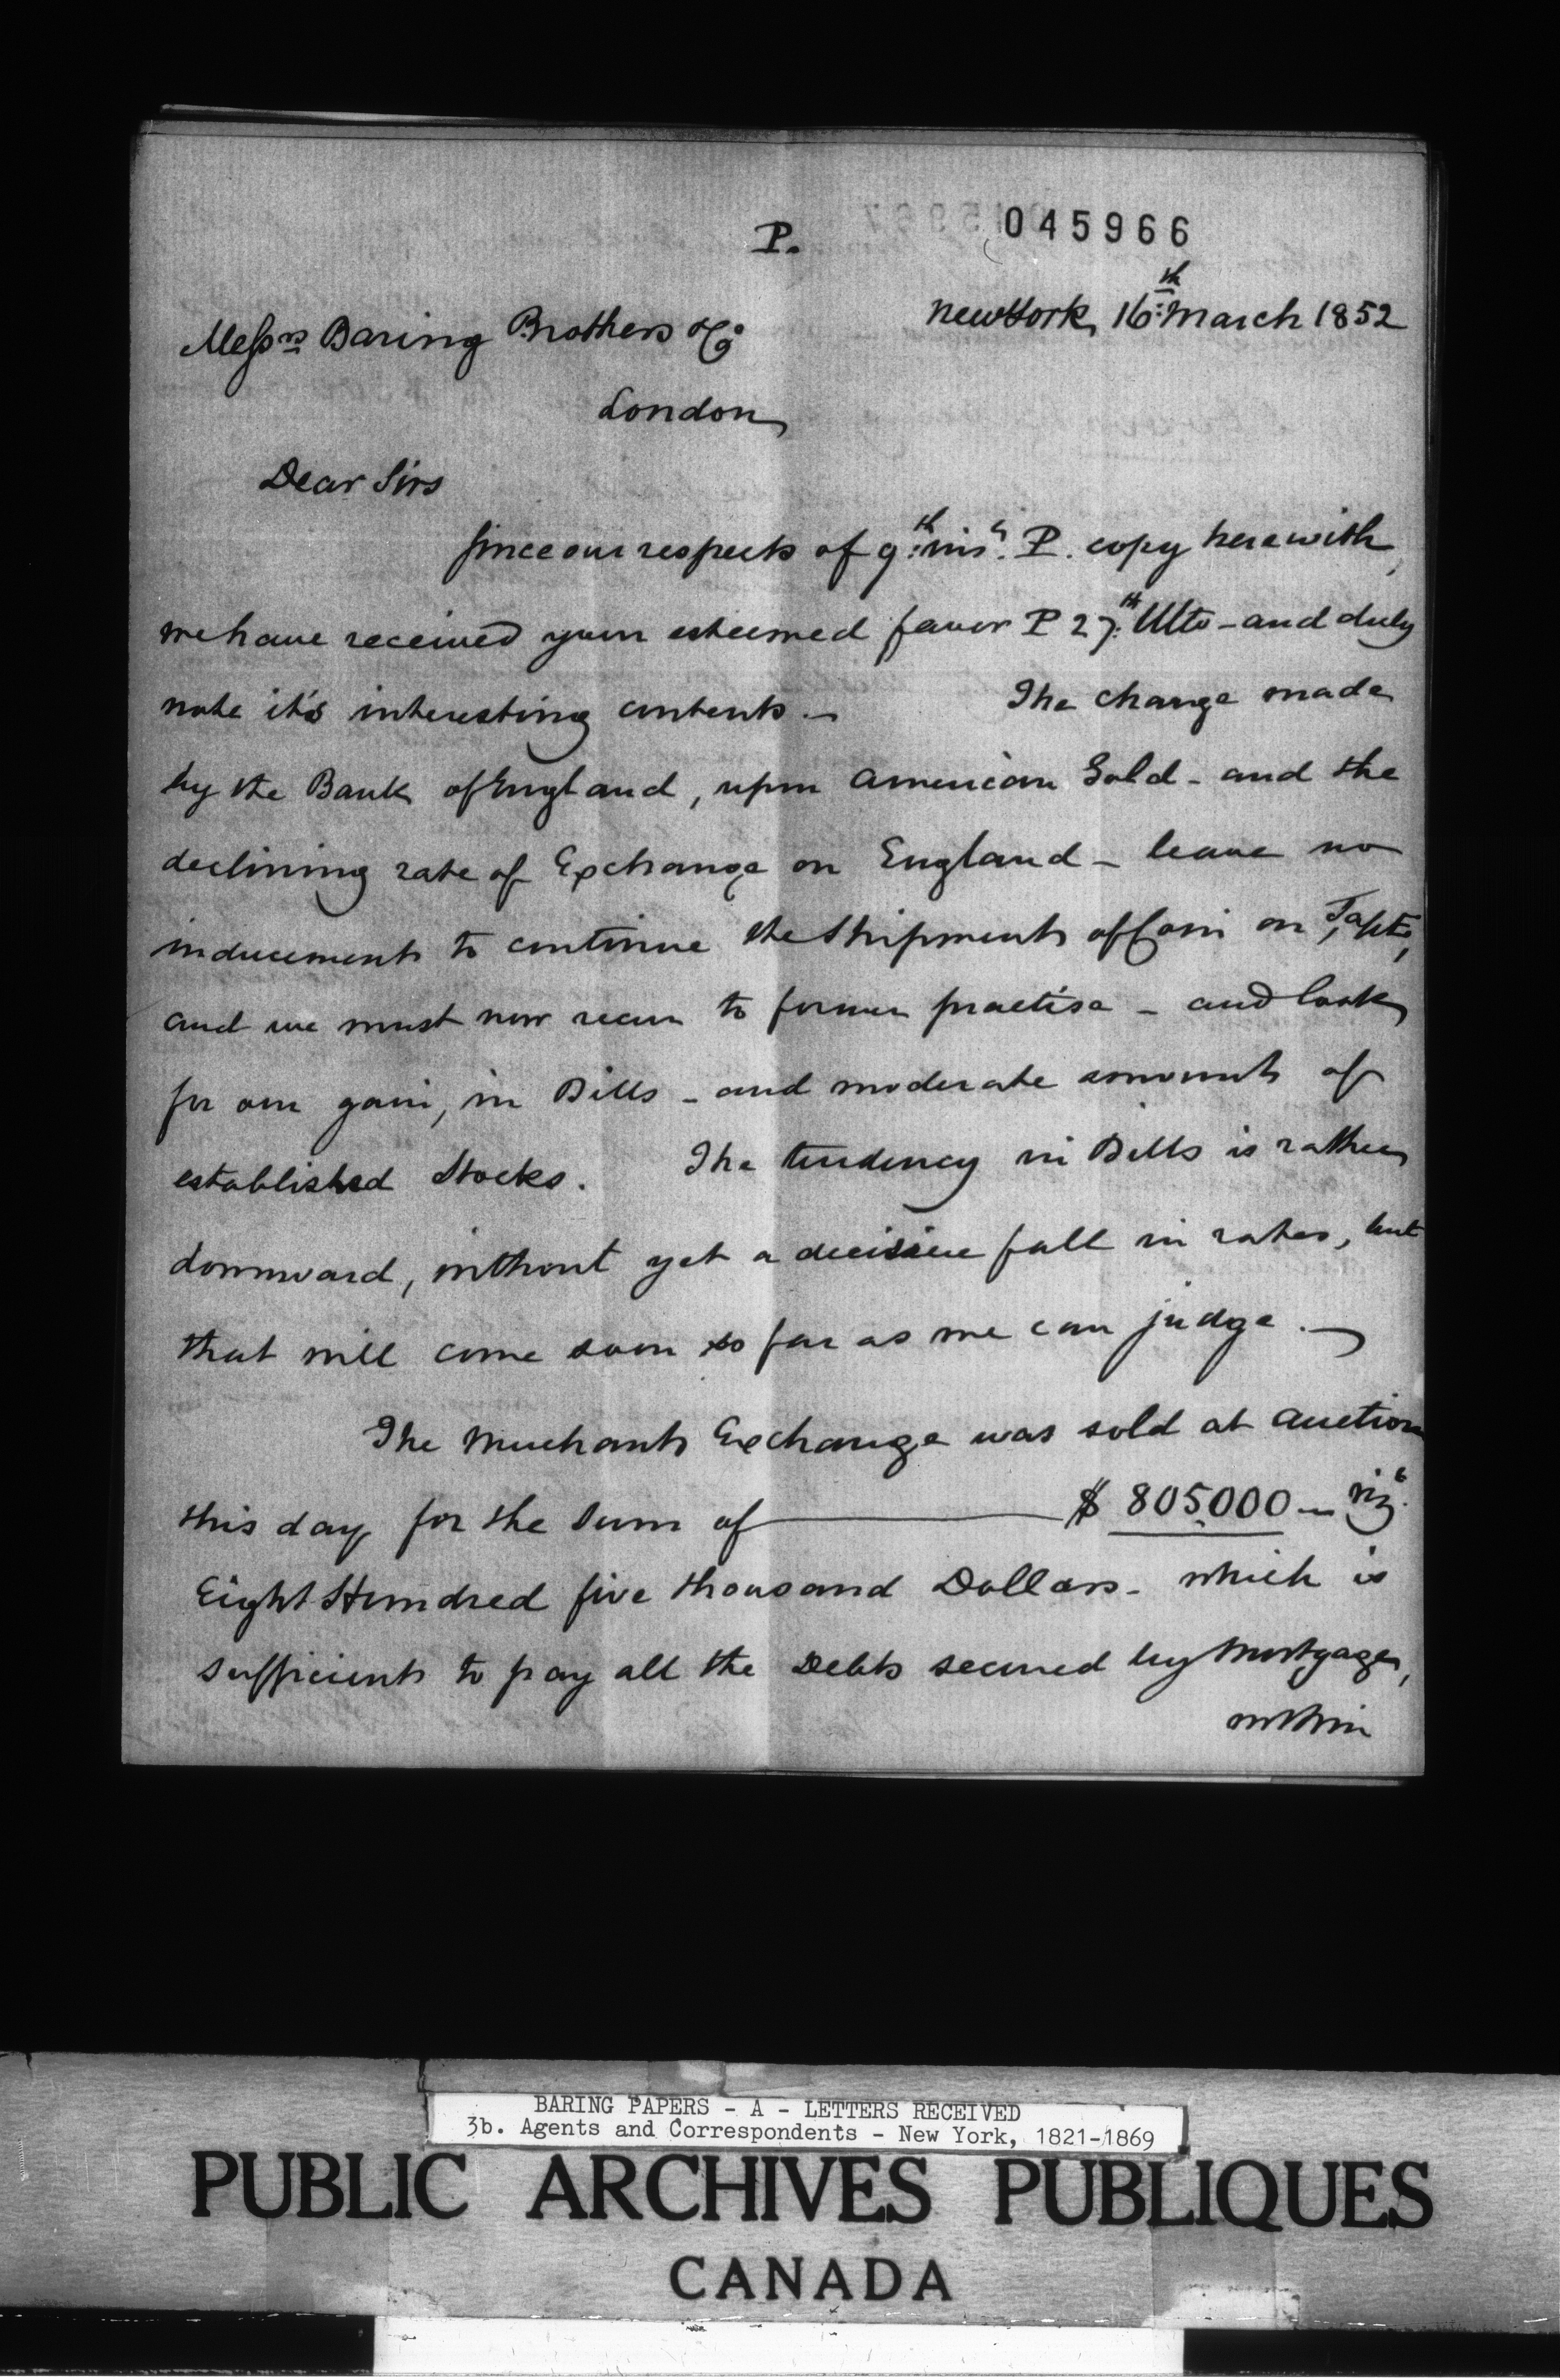 P.
045966
New York, 16th March 1852
Messrs Baring Brothers & Co
London
Dear Sirs
Since our respects of 9th inst. P. copy herewith,
we have received your esteemed favor P 27th Ulto - and duly
note it's interesting contents. -
The change made
by the Bank of England, upon American Gold - and the
declining rate of Exchange on England - leave no
inducement to continue the shipments of Coin on J/a/cts,
and we must now recur to former practise - and look
for our gain, in Bills - and moderate amounts of
established Stocks. The tendency in Bills is rather
downward, without yet a decisive fall in rates, but
that will come soon so far as we can judge. -
The Merchants Exchange was sold at auction
this day for the Sum of $ 805,000 - viz.
Eight Hundred five thousand Dollars - which is
sufficient to pay all the Debts secured by Mortgage,
within
BARING PAPERS - A - LETTERS RECEIVED
3b. Agents and Correspondents - New York, 1821-1869
PUBLIC ARCHIVES PUBLIQUES
CANADA